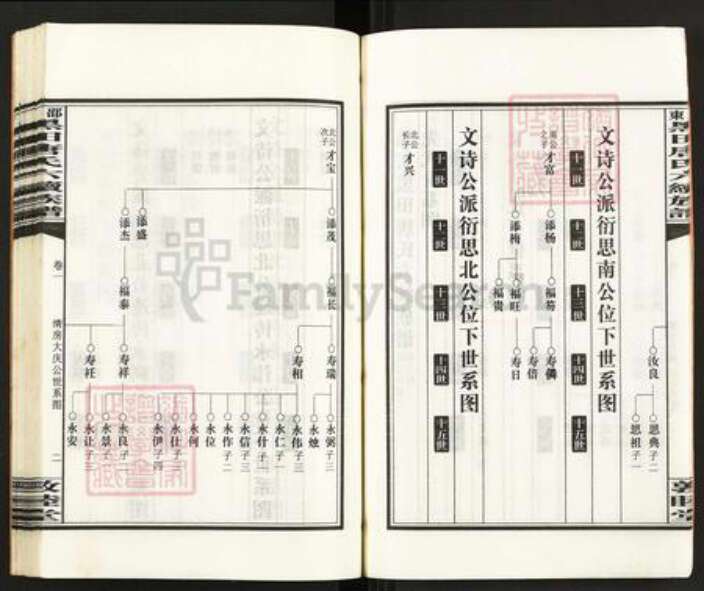 汝良
恩典子二
恩祖子一
文诗公派衍思南公位下世系图
十一世
十二世
十三世
十四世
十五世
南公之子
才富
添杨
添梅
福旺
福贵
寿倍
寿日
文诗公派衍思北公位下世系图
十一世
十二世
十三世
十四世
十五世
北公长子
才兴
北公次子
才宝
添茂
添盛
添杰
福长
福泰
寿瑞
寿相
寿祥
寿衽
永弼子三
永烛
永伟子三
永仁子一
永什子一
永信子三
永作子二
永位
永何
永仕子三
永伊子四
永良子二
永景子
永让子三
永安
卷一
情房大庆公世系图
二
敦睦堂
FamilySearch